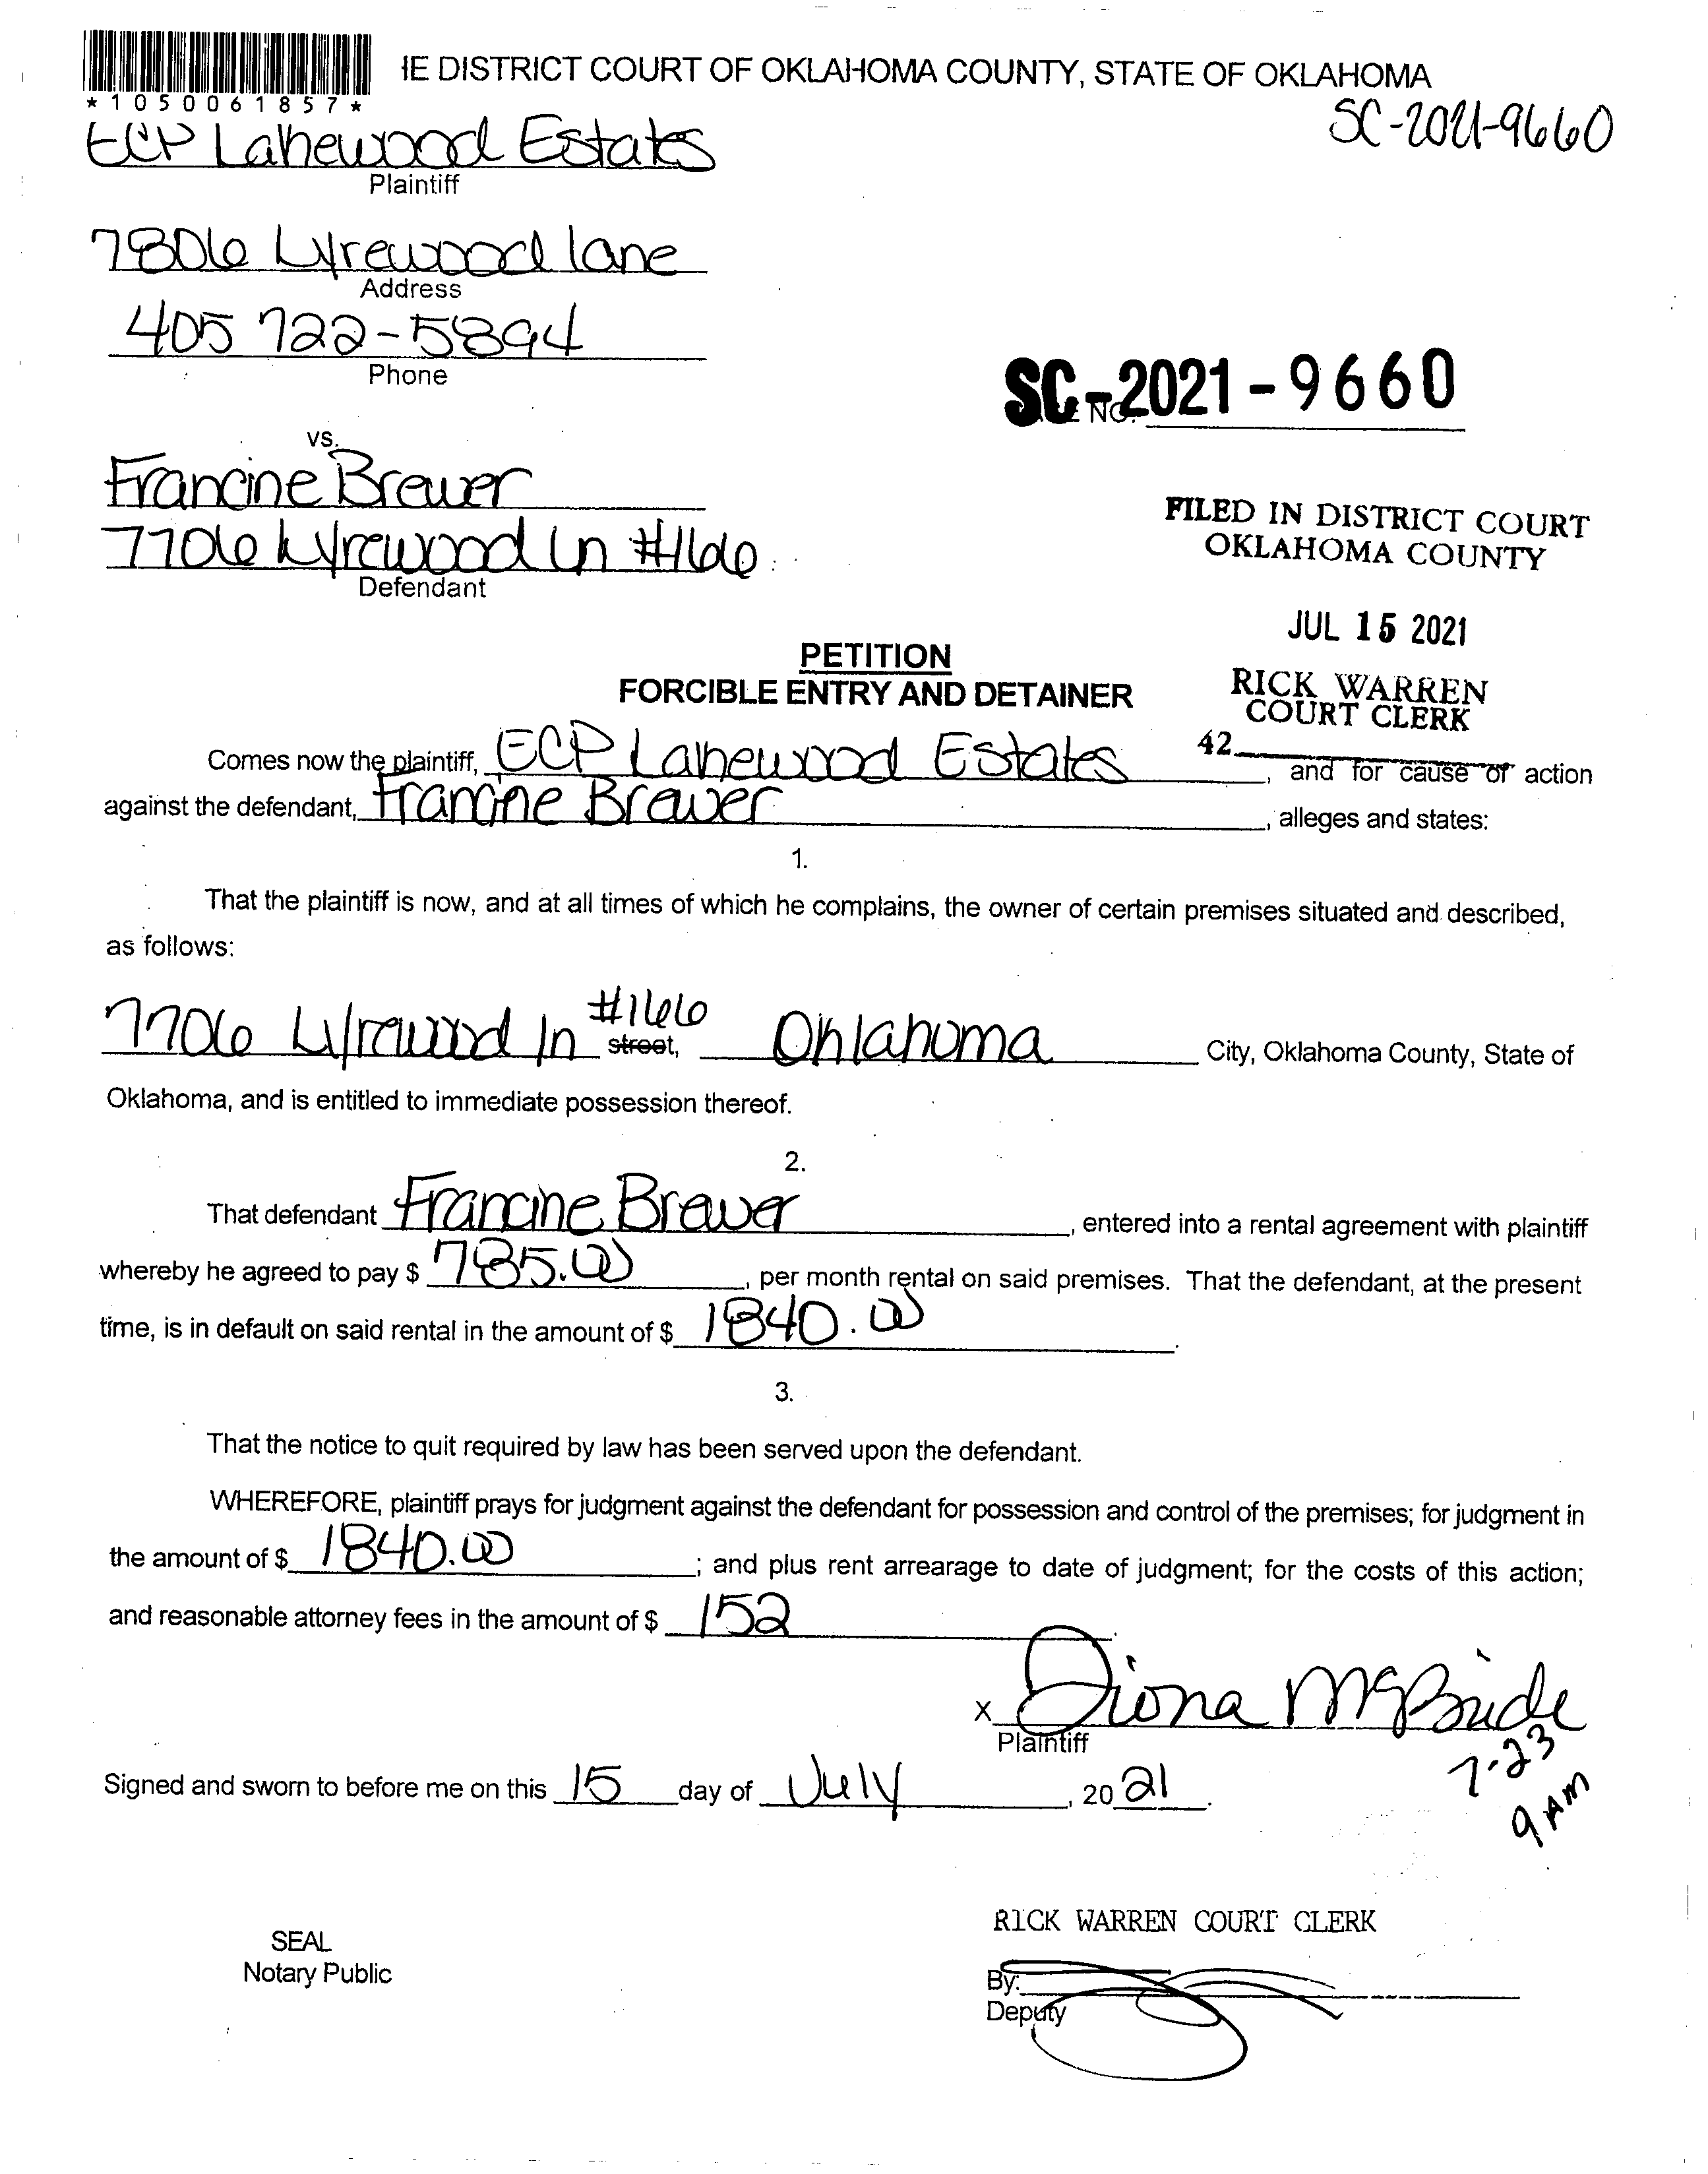 IE DISTRICT COURT OF OKLAHOMA COUNTY, STATE OF OKLAHOMA
*1050061857*
SC-2021-9660
ECP Lakewood Estates
Plaintiff
7806 Lyrewood lane
Address
405 722-5894
Phone
SC-2021-9660
NO.
vs.
Francine Brewer
7706 Lyrewood Ln #166
Defendant
FILED IN DISTRICT COURT
OKLAHOMA COUNTY
JUL 15 2021
RICK WARREN
COURT CLERK
42
PETITION
FORCIBLE ENTRY AND DETAINER
Comes now the plaintiff, ECP Lakewood Estates, and for cause of action
against the defendant, Francine Brewer, alleges and states:
1.
That the plaintiff is now, and at all times of which he complains, the owner of certain premises situated and described,
as follows:
7706 Lyrewood ln #166 street, Oklahoma City, Oklahoma County, State of
Oklahoma, and is entitled to immediate possession thereof.
2.
That defendant Francine Brewer, entered into a rental agreement with plaintiff
whereby he agreed to pay $ 785.00, per month rental on said premises. That the defendant, at the present
time, is in default on said rental in the amount of $ 1840.00.
3.
That the notice to quit required by law has been served upon the defendant.
WHEREFORE, plaintiff prays for judgment against the defendant for possession and control of the premises; for judgment in
the amount of $ 1840.00; and plus rent arrearage to date of judgment; for the costs of this action;
and reasonable attorney fees in the amount of $ 152.
X Diona McBride
Plaintiff
7-23
9 AM
Signed and sworn to before me on this 15 day of July, 2021.
SEAL
Notary Public
RICK WARREN COURT CLERK
By:
Deputy